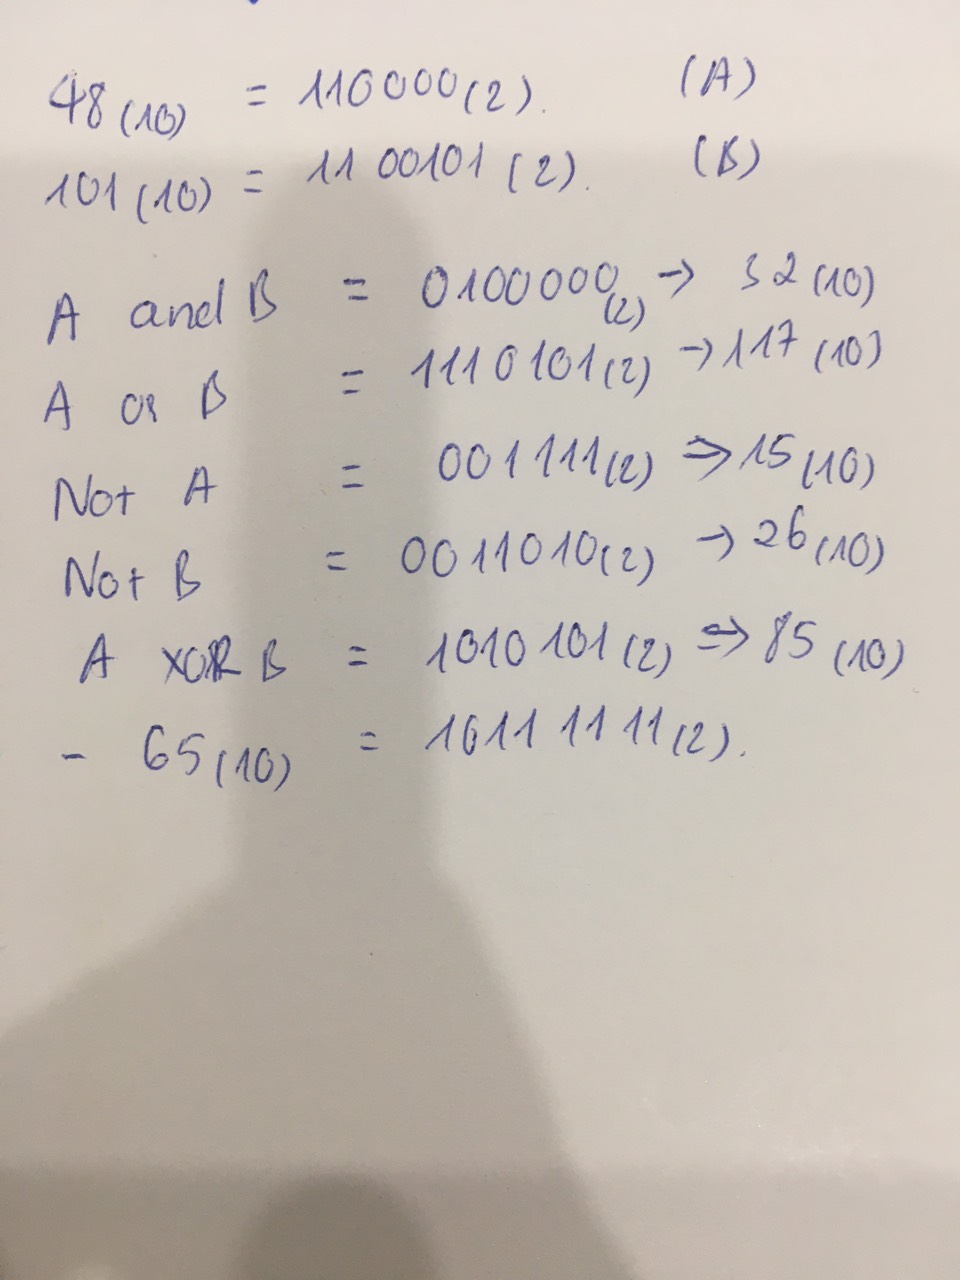 48(10) = 110000(2). (A)
101(10) = 1100101(2). (B)
A and B = 0100000(2) → 32(10)
A or B = 1110101(2) → 117(10)
Not A = 001111(2) ⇒ 15(10)
Not B = 0011010(2) → 26(10)
A XOR B = 1010101(2) ⇒ 85(10)
- 65(10) = 10111111(2).